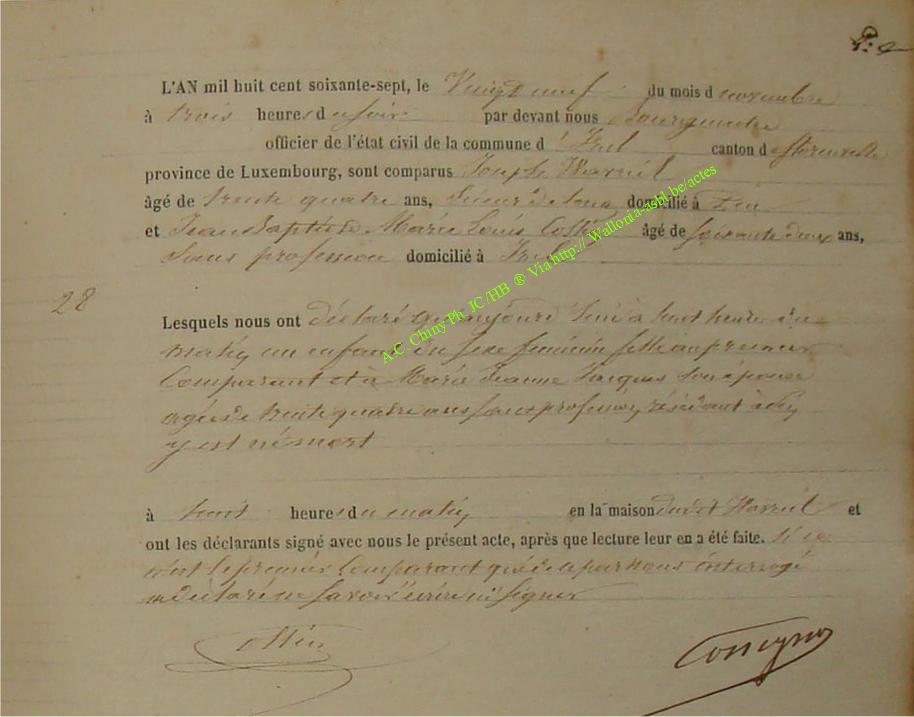 L'AN mil huit cent soixante-sept, le Vingt neuf du mois d novembre
à trois heures du soir par devant nous Bourgmestre
officier de l'état civil de la commune d'Izel canton de florenville
province de Luxembourg, sont comparus Joseph
âgé de trente quatre ans, domicilié à
et Jean Baptiste Marie Louis âgé de soixante deux ans,
Sans profession domicilié à Izel
28
Lesquels nous ont déclaré à huit heure du
matin un enfant du sexe féminin fille au premier
Comparant et à Marie Jeanne Jacques son épouse
agée de trente quatre ans sans profession résidant à
y est né mort
à huit heures du matin en la maison dudit et
ont les déclarants signé avec nous le présent acte, après que lecture leur en a été faite. si ce
n'est le premier Comparant qui de ce par nous interrogé
a déclaré ne savoir écrire ni signer
A.C. Chiny Ph JC/HB ® Via http://Wallonia-asbl.be/actes